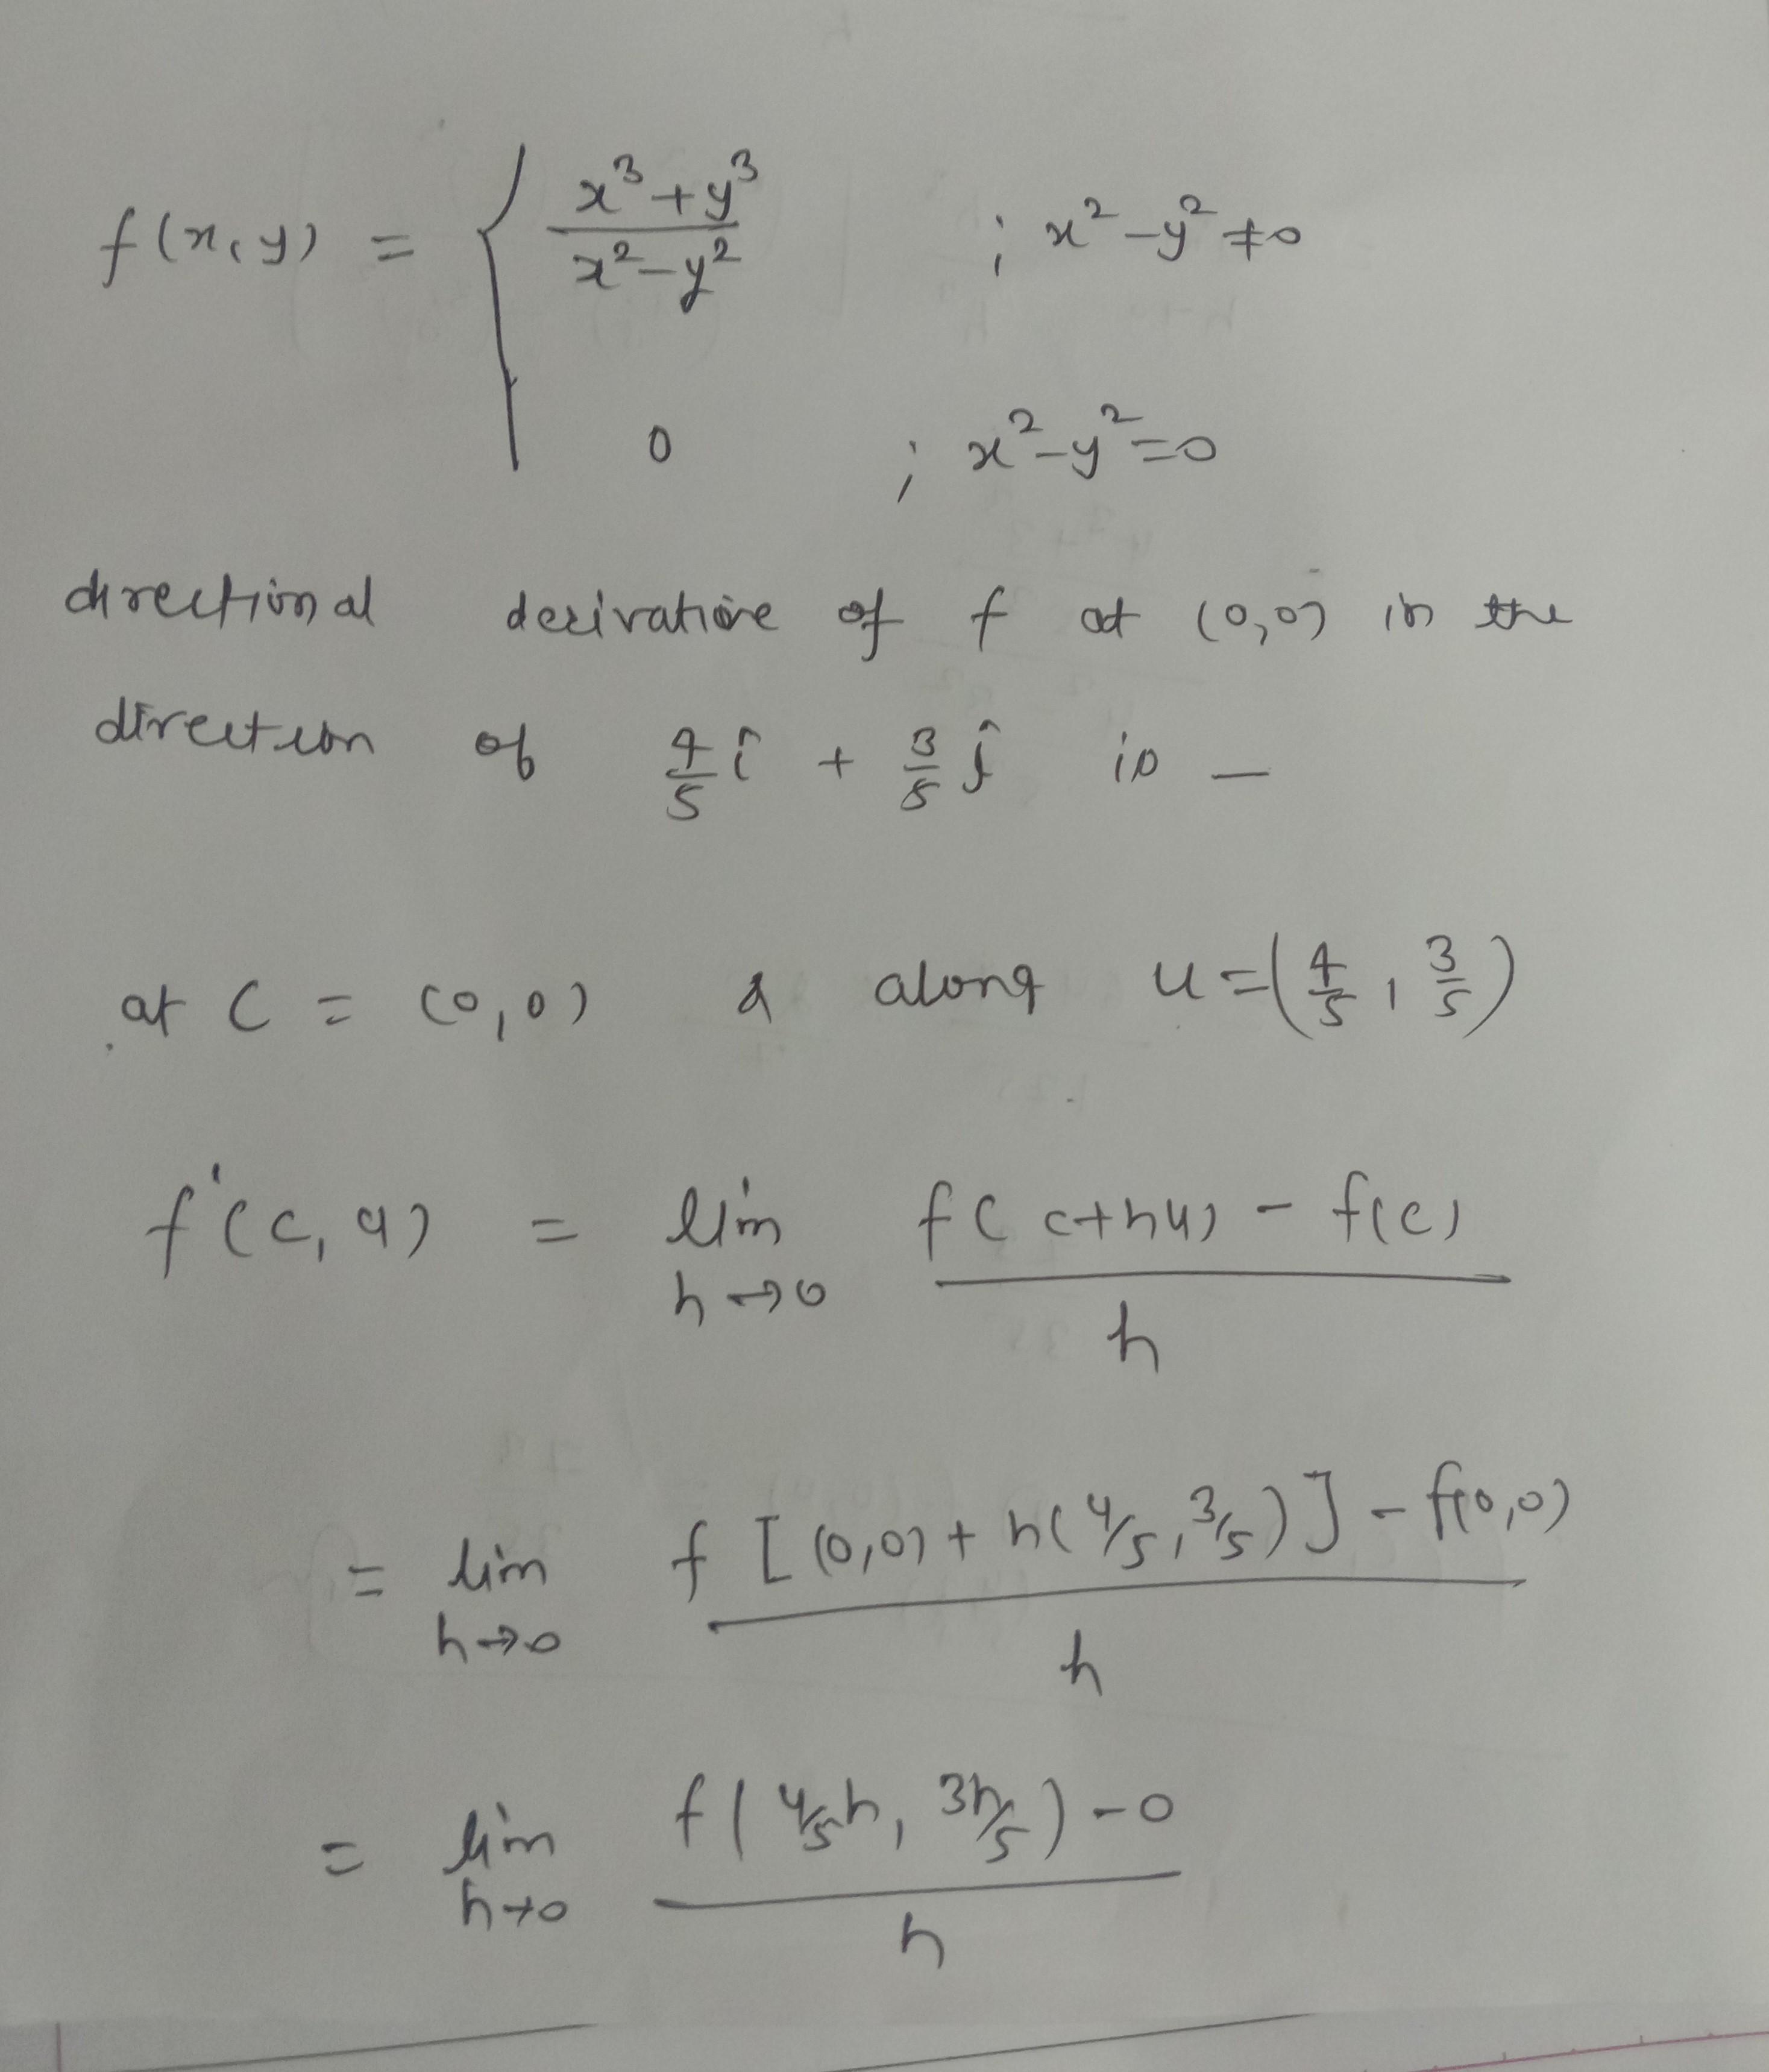 f(x,y) = { x³+y³ / x²-y² ; x²-y² ≠0
0 ; x²-y²=0
directional derivative of f at (0,0) in the
direction of 4/5 î + 3/5 ĵ is —
at C = (0,0) & along u=(4/5, 3/5)
f'(c,u) = lim h→0 f(c+hu) - f(c) / h
= lim h→0 f[(0,0)+h(4/5,3/5)] - f(0,0) / h
= lim h→0 f(4/5h, 3h/5)-0 / h